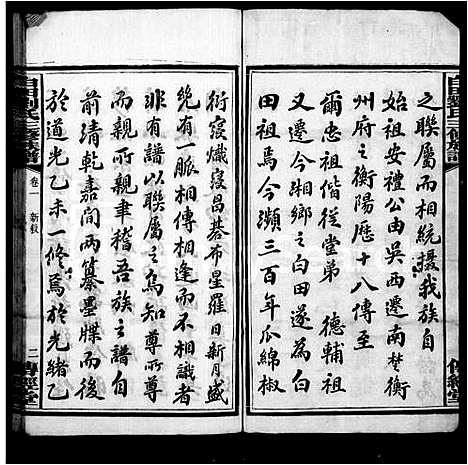 之聯屬而相統攝我族自
始祖安禮公由吳西遷南楚衡
州府之衡陽歷十八傳至
爾忠祖偕從堂弟 德輔祖
田始遷今湘鄉之白田遂為白
田祖焉今瀕三百年瓜綿椒
衍寖熾寖昌棊布星羅日新月盛
幾有一脈相傳相逢而不相識者
非有譜以聯屬之烏知尊所尊
而親所親聿稽吾族之譜自
前清乾嘉間兩纂墨牒而後
於道光乙未一修焉於光緒乙
白田劉氏三修族譜
卷一
新敘
二
傳經堂